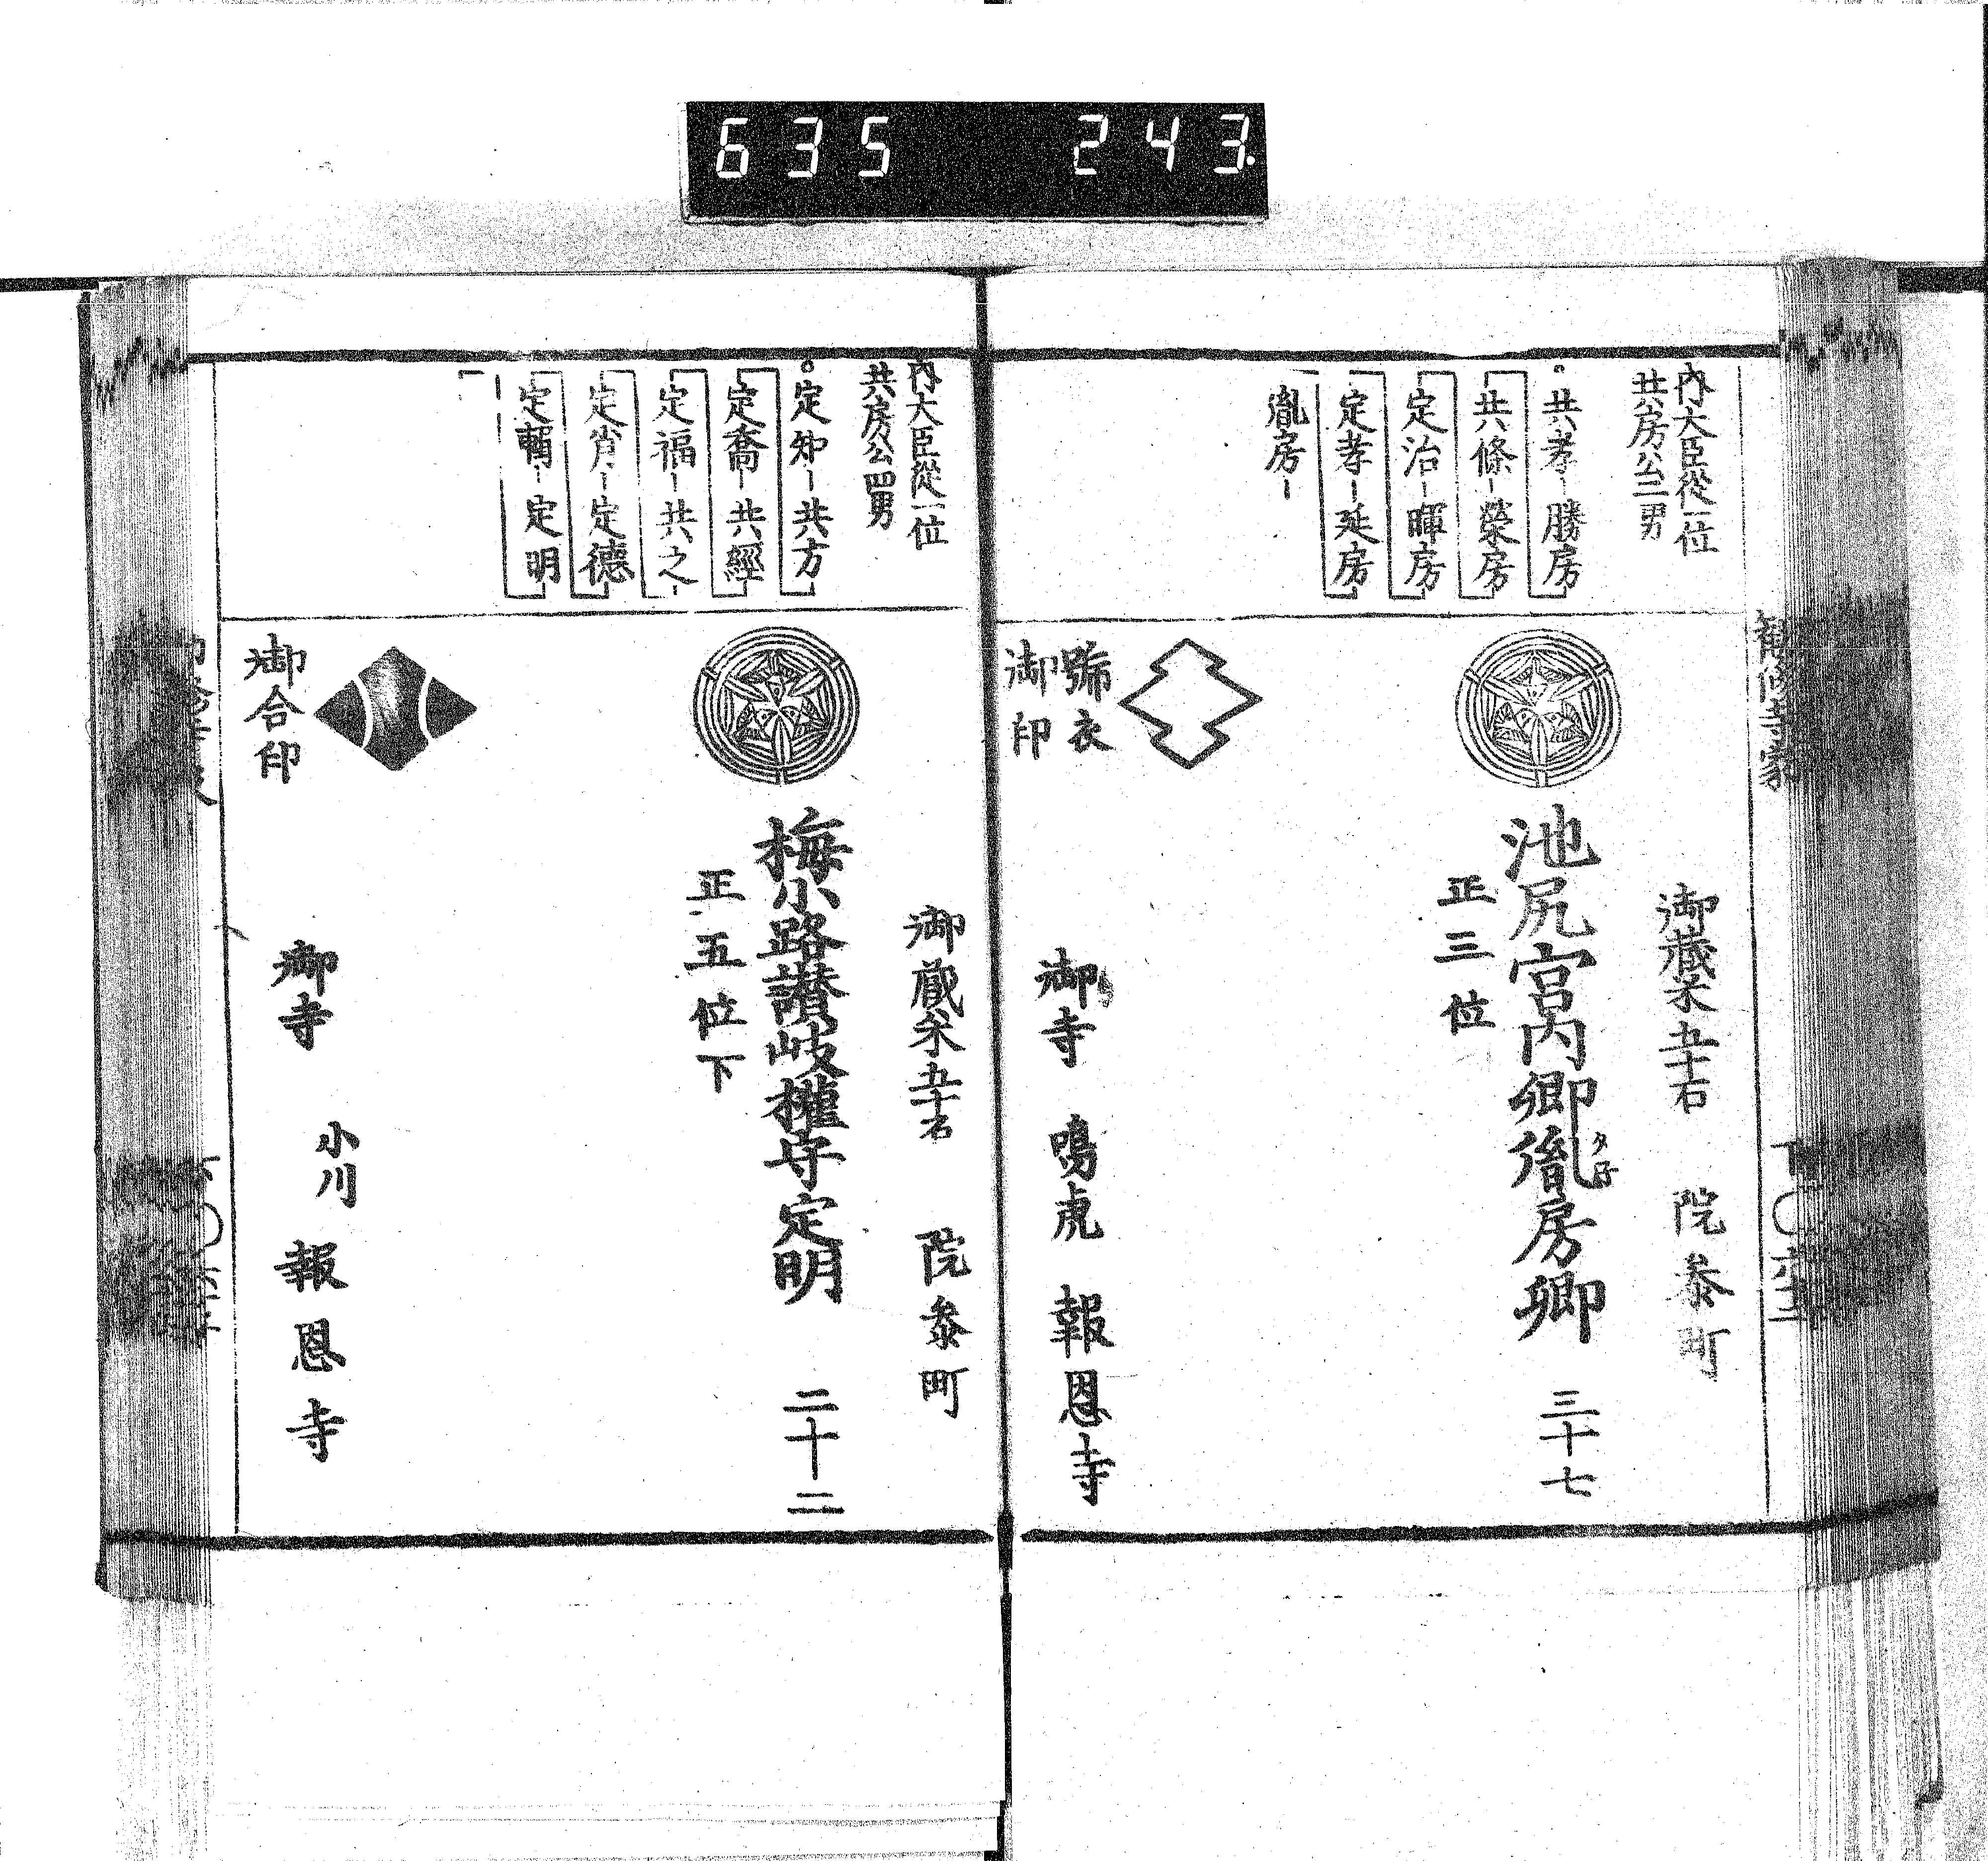 635 243.
勧修寺家
内大臣從一位
共房公二男
共孝-勝房
共條-榮房
定治-暉房
定孝-延房
胤房-
御藏米五十石 院参町
池尻宮内卿胤房卿 三十七
タネ
正三位
號衣
御印
御寺 鳴虎 報恩寺
内大臣從一位
共房公四男
定矩-共方
定喬-共經
定福-共之
定肖-定德
定輔-定明
御藏米五十石 院参町
梅小路讃岐權守定明 二十二
正五位下
御合印
御寺 小川 報恩寺